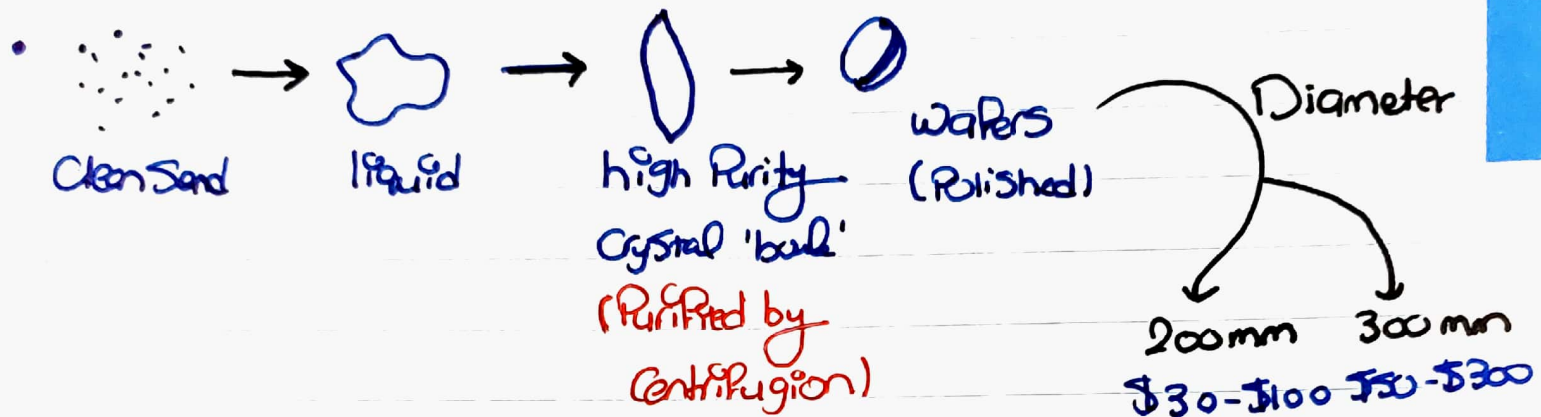 Clean Sand
liquid
high Purity
Crystal 'boule'
(Purified by
Centrifugion)
wafers
(Polished)
Diameter
200mm
$30-$100
300mm
$50-$300